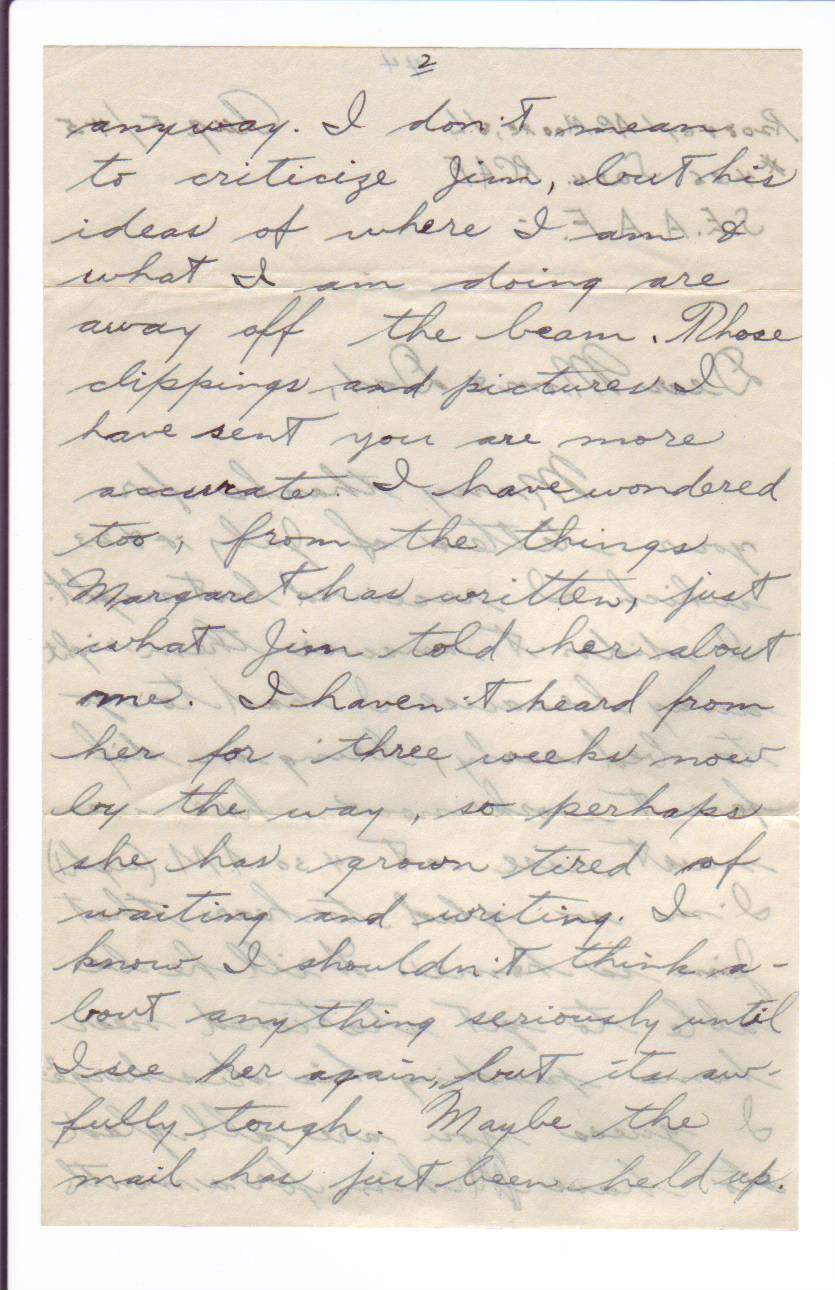 2
anyway. I don't mean
to criticize Jim, but his
ideas of where I am &
what I am doing are
away off the beam. Those
clippings and pictures I
have sent you are more
accurate. I have wondered
too, from the things
Margaret has written, just
what Jim told her about
me. I haven't heard from
her for three weeks now
by the way, so perhaps
she has grown tired of
waiting and writing. I
know I shouldn't think a-
bout anything seriously until
I see her again, but its aw-
fully tough. Maybe the
mail has just been held up.